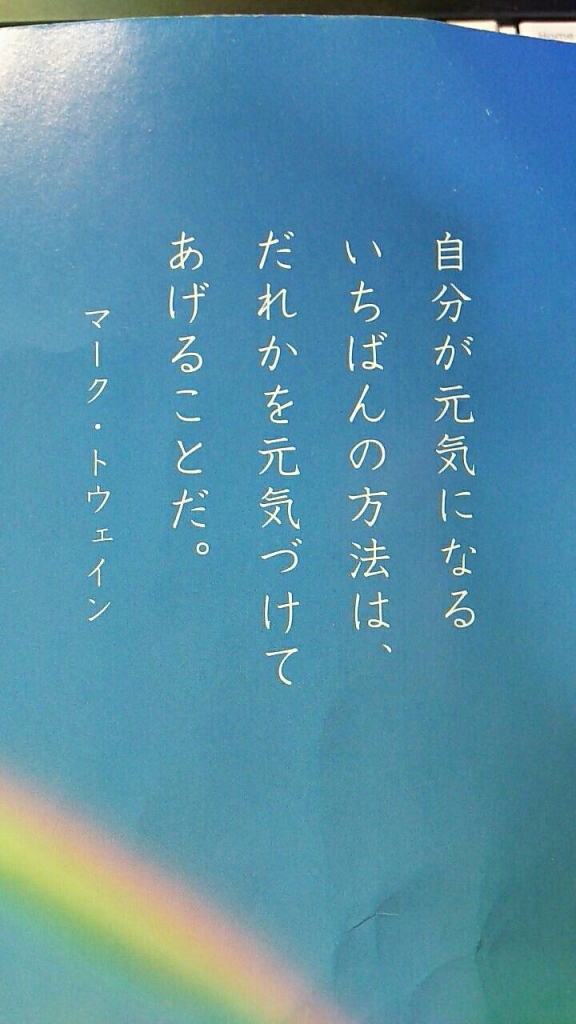 自分が元気になる
いちばんの方法は、
だれかを元気づけて
あげることだ。
マーク・トウェイン
Home